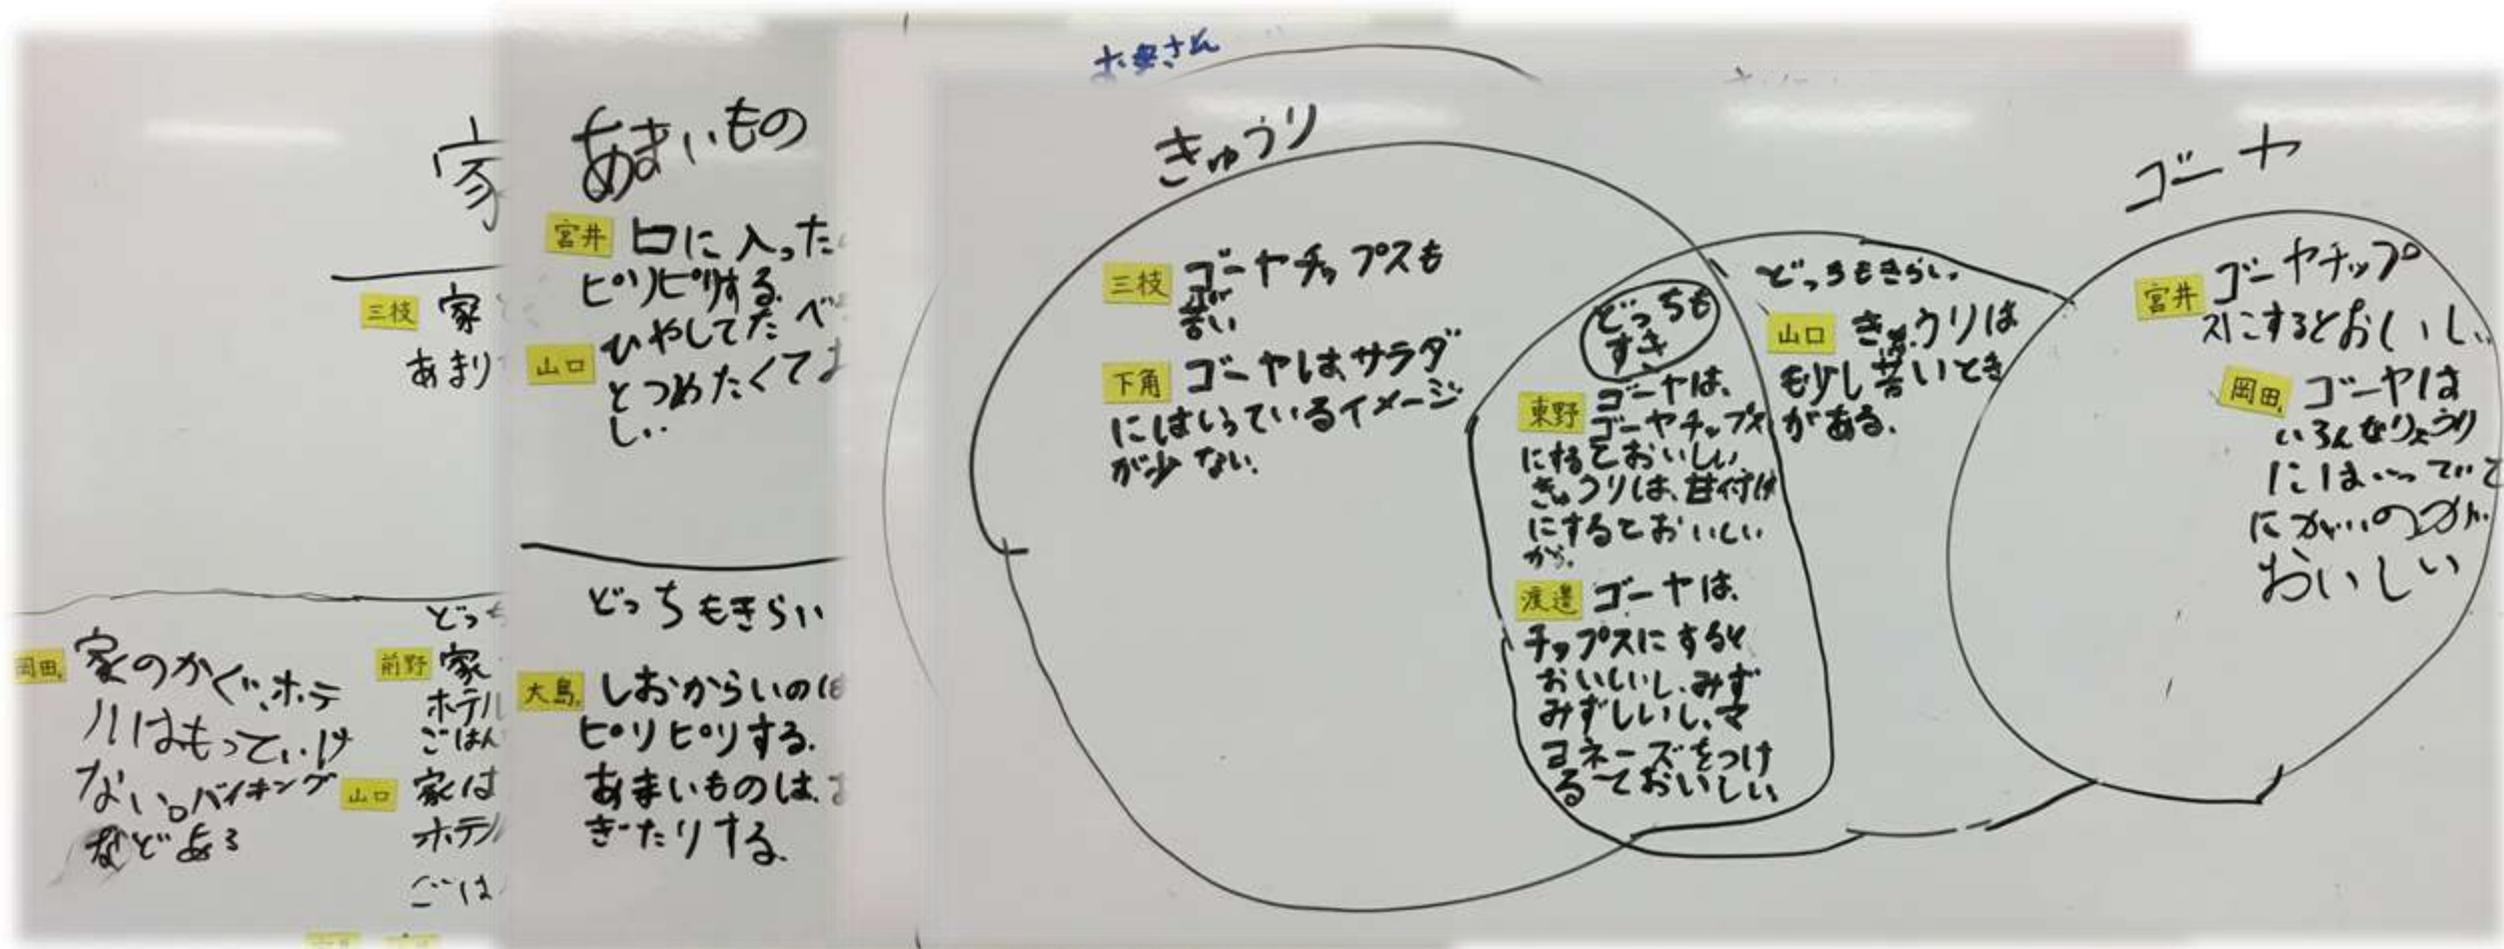 家
三枝 家
あまり
岡田 家のかぐ、ホテ
ルはもっていけ
ない。バイキング
などある
どっち
前野 家
ホテル
ごはん
山口 家は
ホテル
ごは
あまいもの
宮井 口に入った
ピリピリする
山口 ひやしてたべ
とつめたくてお
しい
どっちもきらい
大島 しおからいのは
ピリピリする。
あまいものは、
ぎたりする。
お母さん
きゅうり
三枝 ゴーヤチップスも
苦い
下角 ゴーヤはサラダ
にはいっているイメージ
が少ない。
どっちも
すき
東野 ゴーヤは、
ゴーヤチップス
にするとおいしい
きゅうりは、甘付け
にするとおいしい
から。
渡邉 ゴーヤは、
チップスにすると
おいしいし、みず
みずしいし、マ
ヨネーズをつけ
るておいしい
どっちもきらい
山口 きゅうりは
も少し苦いとき
がある。
ゴーヤ
宮井 ゴーヤチップ
スにするとおいしい
岡田 ゴーヤは
いろんなりょうり
にはいっていて
にがいのが
おいしい